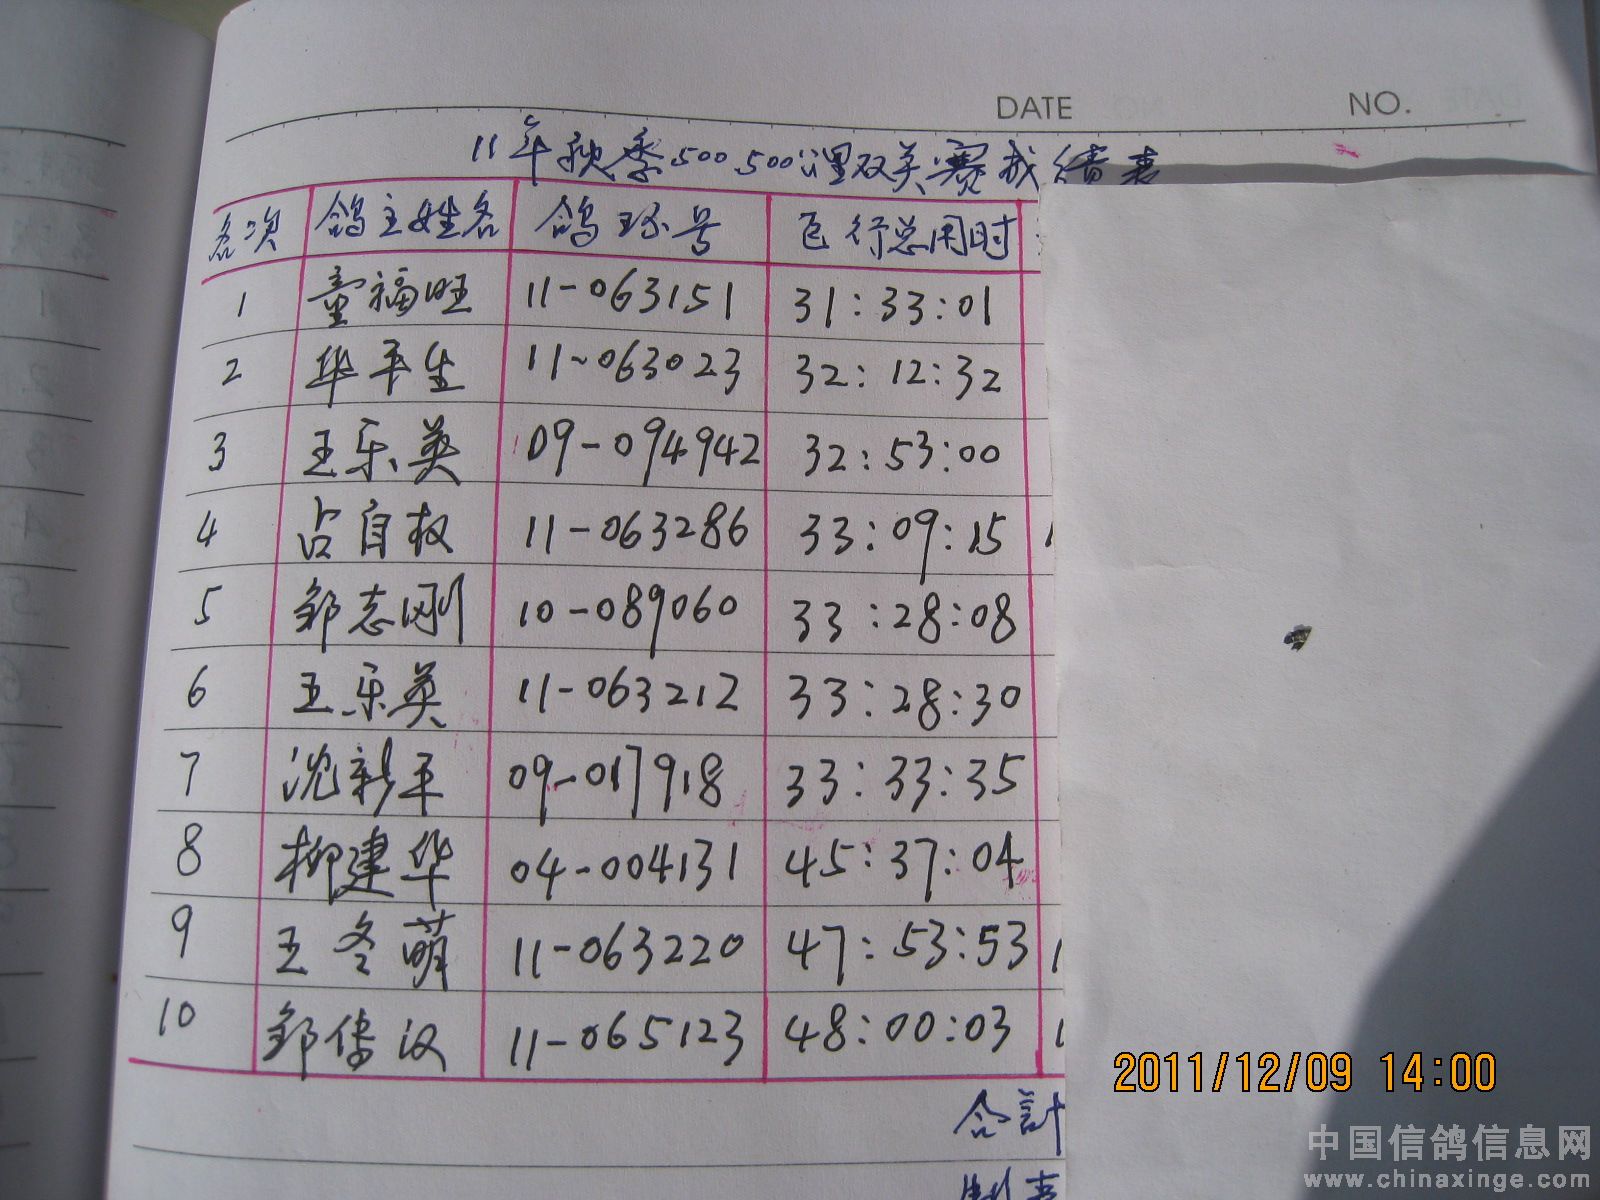 DATE NO.
11年秋季500.500公里双关赛成绩表
名次 鸽主姓名 鸽环号 飞行总用时
1 童福旺 11-063151 31:33:01
2 华平生 11-063023 32:12:32
3 王乐英 09-094942 32:53:00
4 占自权 11-063286 33:09:15
5 邹志刚 10-089060 33:28:08
6 王乐英 11-063212 33:28:30
7 沈新平 09-017918 33:33:35
8 柳建华 04-004131 45:37:04
9 王冬萌 11-063220 47:53:53
10 邹传汉 11-065123 48:00:03
合計
制表
2011/12/09 14:00
中国信鸽信息网
www.chinaxinge.com